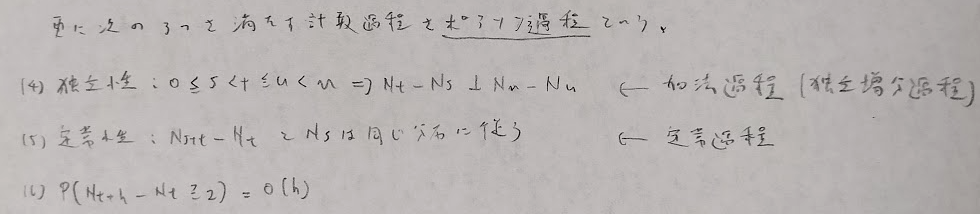 更に次の3つを満たす計数過程をポアソン過程という。
(4) 独立性 : 0 ≤ s < t ≤ u < n ⇒ Nt - Ns ⊥ Nn - Nu ← 加法過程 (独立増分過程)
(5) 定常性 : Ns+t - Nt と Ns は同じ分布に従う ← 定常過程
(6) P(Nt+h - Nt ≧ 2) = o(h)